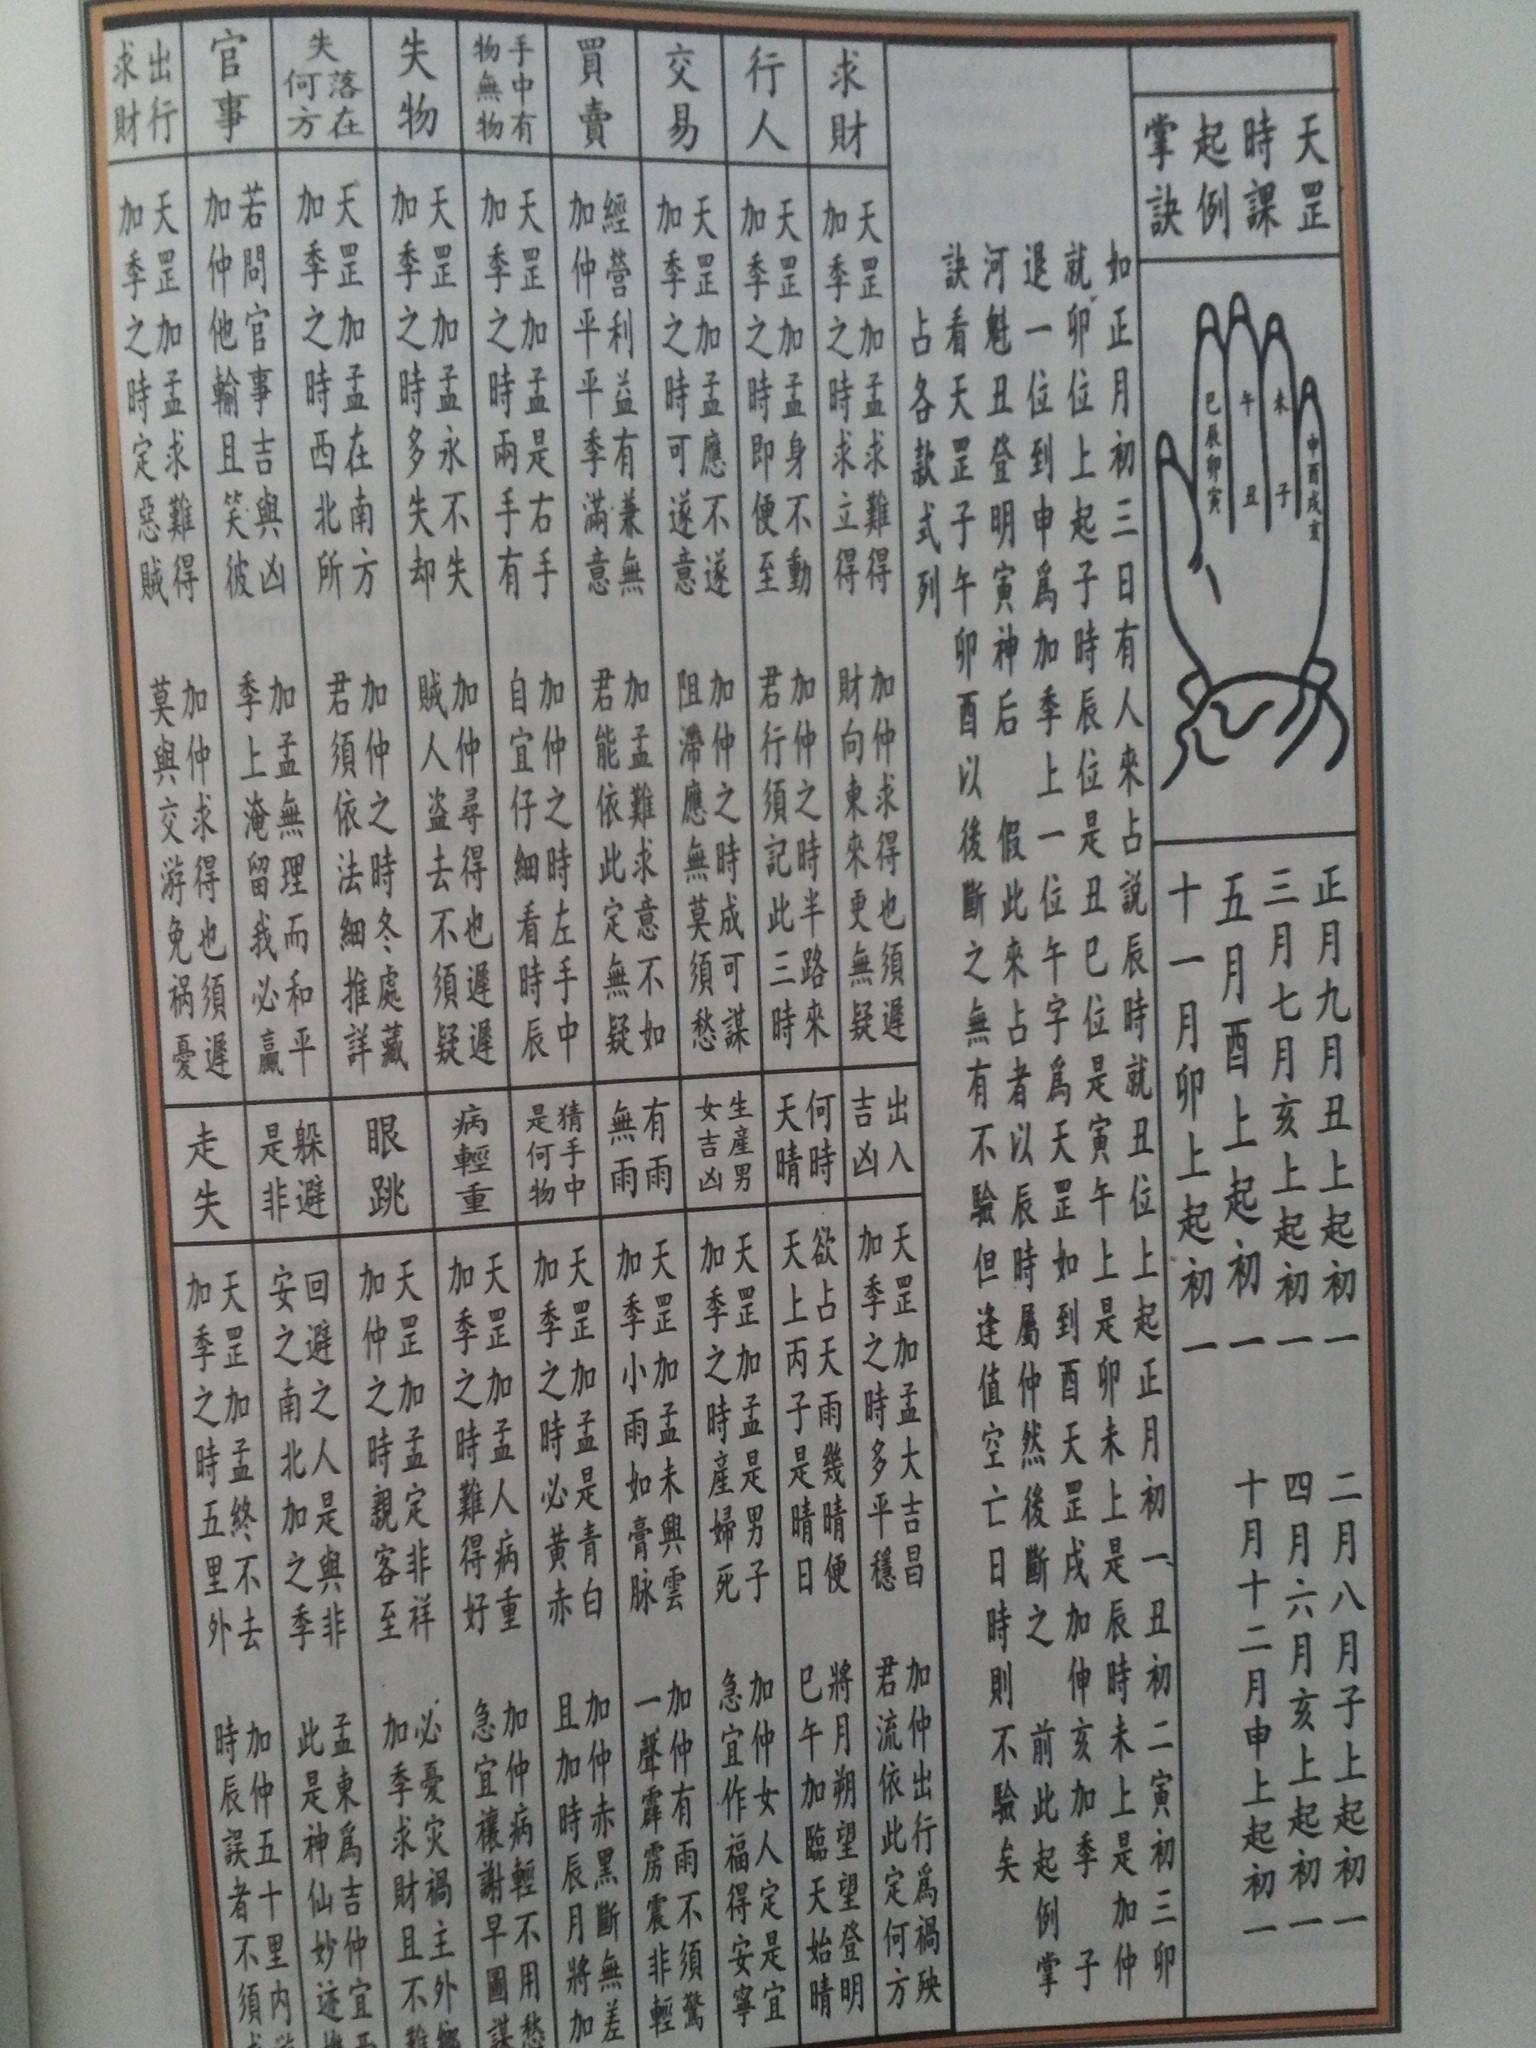 天罡
時課
起例
掌訣
巳辰卯寅
午 丑
未 子
申酉戌亥
正月九月丑上起初一
三月七月亥上起初一
五月酉上起初一
十一月卯上起初一
二月八月子上起初一
四月六月亥上起初一
十月十二月申上起初一
如正月初三日有人來占説辰時就丑位上起正月初一丑初二寅初三卯
就卯位上起子時辰位是丑巳位是寅午上是卯未上是辰時未上是加仲
退一位到申爲加季上一位午字爲天罡如到酉天罡戌加伸亥加季 子
河魁丑登明寅神后 假此來占者以辰時屬仲然後斷之 前此起例掌
訣看天罡子午卯酉以後斷之無有不驗但逢值空亡日時則不驗矣
占各款式列
求財
天罡加孟求難得 加仲求得也須遲
加季之時求立得 財向東來更無疑
行人
天罡加孟身不動 加仲之時半路來
加季之時即便至 君行須記此三時
交易
天罡加孟應不遂 加仲之時成可謀
加季之時可遂意 阻滯應無莫須愁
買賣
經營利益有兼無 加孟難求意不如
加仲平平季滿意 君能依此定無疑
手中有
物無物
天罡加孟是右手 加仲之時左手中
加季之時兩手有 自宜仔細看時辰
失物
天罡加孟永不失 加仲尋得也遲遲
加季之時多失却 賊人盜去不須疑
失落在
何方
天罡加孟在南方 加仲之時冬處藏
加季之時西北所 君須依法細推詳
官事
若問官事吉與凶 加孟無理而和平
加仲他輸且笑彼 季上淹留我必贏
出行
求財
天罡加孟求難得 加仲求得也須遲
加季之時定惡賊 莫與交游免祸憂
出入
吉凶
天罡加孟大吉昌 加仲出行爲禍殃
加季之時多平穩 君流依此定何方
何時
天晴
欲占天雨幾晴便 將月朔望望登明
天上丙子是晴日 巳午加臨天始晴
生産男
女吉凶
天罡加孟是男子 加仲女人定是宜
加季之時産婦死 急宜作福得安寧
有雨
無雨
天罡加孟未興雲 加仲有雨不須驚
加季小雨如膏脉 一聲霹雳震非輕
猜手中
是何物
天罡加孟是青白 加仲赤黑斷無差
加季之時必黃赤 且加時辰月將加
病輕重
天罡加孟人病重 加仲病輕不用愁
加季之時難得好 急宜禳謝早圖謀
眼跳
天罡加孟定非祥 必憂灾禍主外
加仲之時親客至 加季求財且不難
躲避
是非
回避之人是與非 孟東爲吉仲宜
安之南北加之季 此是神仙妙迹
走失
天罡加孟終不去 加仲五十里内
加季之時五里外 時辰誤者不須